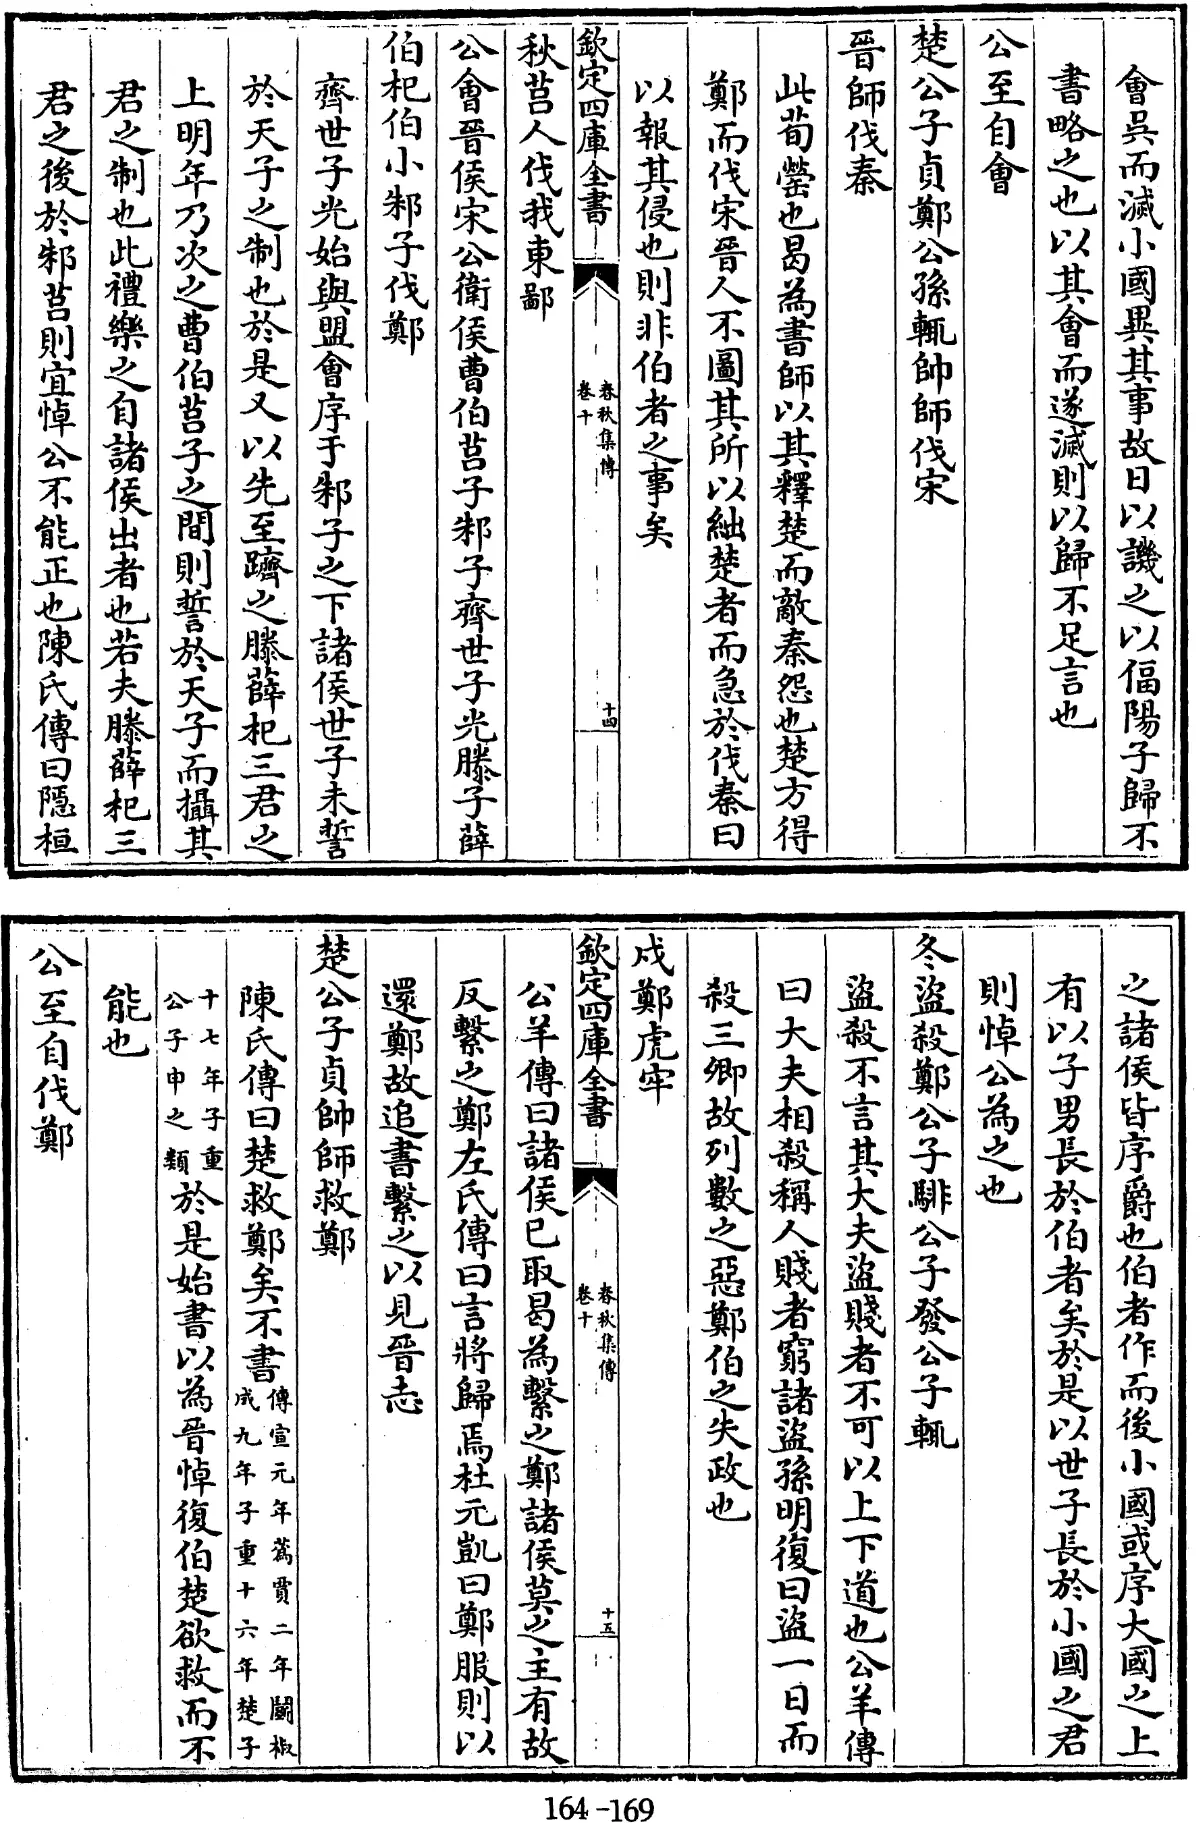 會吳而滅小國異其事故日以譏之以偪陽子歸不
書略之也以其會而遂滅則以歸不足言也
公至自會
楚公子貞鄭公孫輒帥師伐宋
晉師伐秦
此荀罃也曷為書師以其釋楚而敵秦怨也楚方得
鄭而伐宋晉人不圖其所以絀楚者而急於伐秦曰
以報其侵也則非伯者之事矣
欽定四庫全書
春秋集傳
卷十
十四
秋莒人伐我東鄙
公會晉侯宋公衛侯曹伯莒子邾子齊世子光滕子薛
伯杞伯小邾子伐鄭
齊世子光始與盟會序于邾子之下諸侯世子未誓
於天子之制也於是又以先至躋之滕薛杞三君之
上明年乃次之曹伯莒子之間則誓於天子而攝其
君之制也此禮樂之自諸侯出者也若夫滕薛杞三
君之後於邾莒則宜悼公不能正也陳氏傳曰隱桓
之諸侯皆序爵也伯者作而後小國或序大國之上
有以子男長於伯者矣於是以世子長於小國之君
則悼公為之也
冬盜殺鄭公子騑公子發公子輒
盜殺不言其大夫盜賤者不可以上下道也公羊傳
曰大夫相殺稱人賤者窮諸盜孫明復曰盜一日而
殺三卿故列數之惡鄭伯之失政也
戍鄭虎牢
欽定四庫全書
春秋集傳
卷十
十五
公羊傳曰諸侯已取曷為繫之鄭諸侯莫之主有故
反繫之鄭左氏傳曰言將歸焉杜元凱曰鄭服則以
還鄭故追書繫之以見晉志
楚公子貞帥師救鄭
陳氏傳曰楚救鄭矣不書傳宣元年蒍賈二年鬭椒
成九年子重十六年楚子
十七年子重
公子申之類於是始書以為晉悼復伯楚欲救而不
能也
公至自伐鄭
164-169